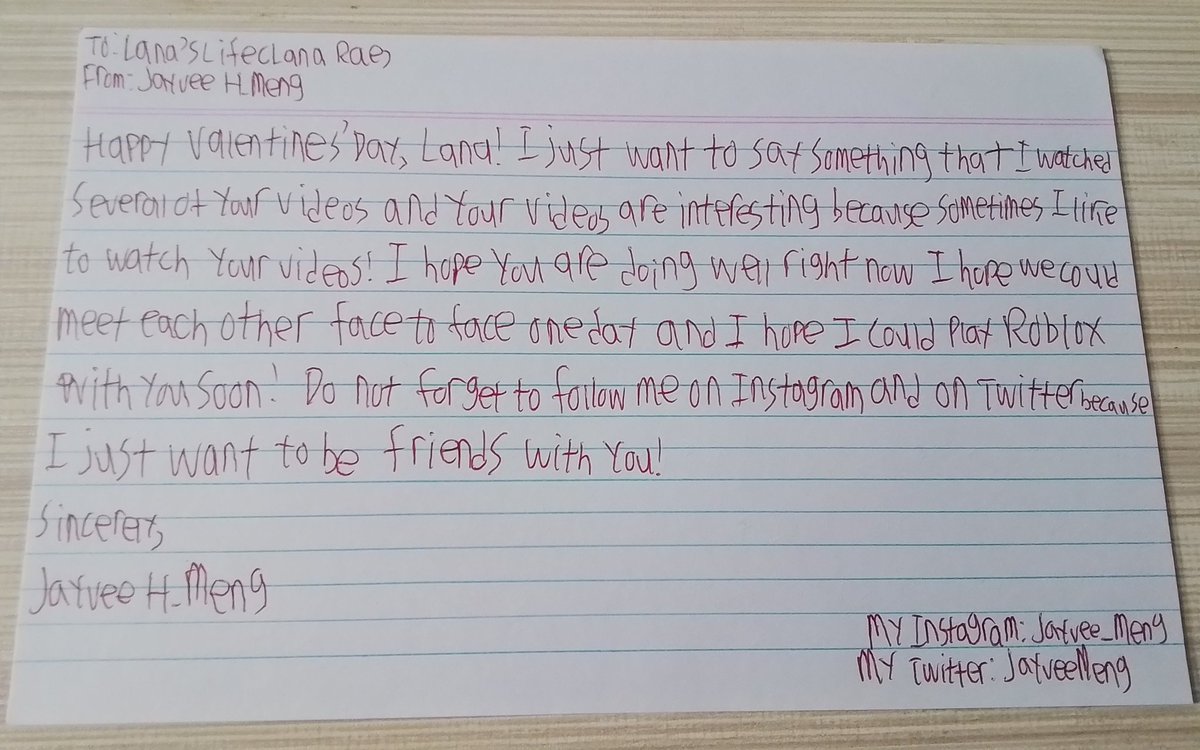 To: Lana's Life(Lana Rae)
From: Jayvee H. Meng
Happy Valentines' Day, Lana! I just want to say something that I watched
several of your videos and your videos are interesting because sometimes I like
to watch your videos! I hope you are doing well right now I hope we could
meet each other face to face one day and I hope I could play Roblox
with you soon! Do not forget to follow me on Instagram and on Twitter because
I just want to be friends with you!
Sincerely,
Jayvee H. Meng
My Instagram: Jayvee_Meng
My Twitter: JayveeMeng